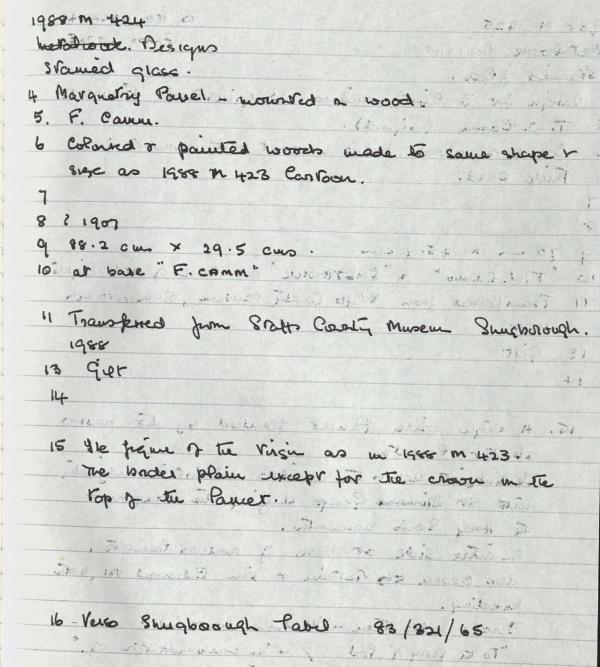 1988 M 424
Designs
Stained glass.
4 Marquetry Panel - mounted on wood.
5. F. Camm.
6 Coloured & painted woods made to same shape &
size as 1988 M 423 Cartoon.
7
8 ? 1907
9 88.2 cms × 29.5 cms.
10 at base "F. CAMM"
11 Transferred from Staffs County Museum Shugborough.
1988
13 Gift
14
15 The figure of the Virgin as in 1988 M 423.
The border plain except for the crown in the
top of the Panel.
16 Verso Shugborough Label 83/321/65